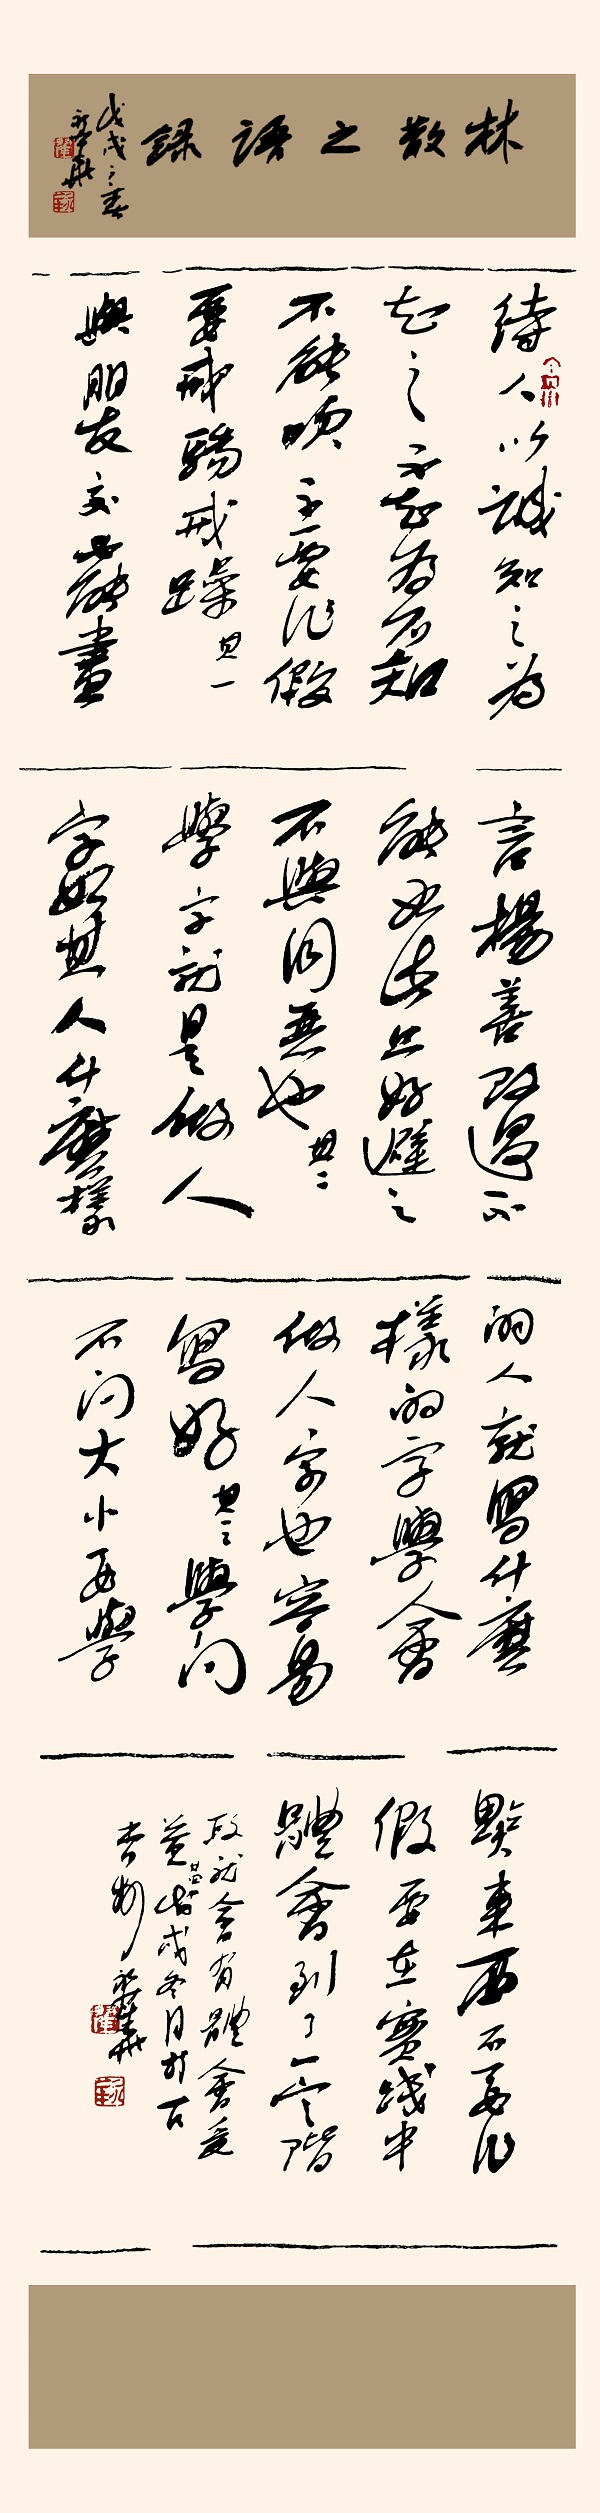 林散之語錄
戊戌之春
待人以誠知之為
知之不知為不知
不能 不要作假
要戒驕戒躁其一
與朋友交 能盡
言揚善改過不
能如此只好避之
不與同惡也其二
學字就是做人
字如其人什麼樣
的人就寫什麼
樣的字學會
做人字也容易
寫好其三學問
不問大小要學
點東西不要作
假要在實踐中
體會到了一定階
段就會有體會矣
其四時戊戌冬月於古
杏村